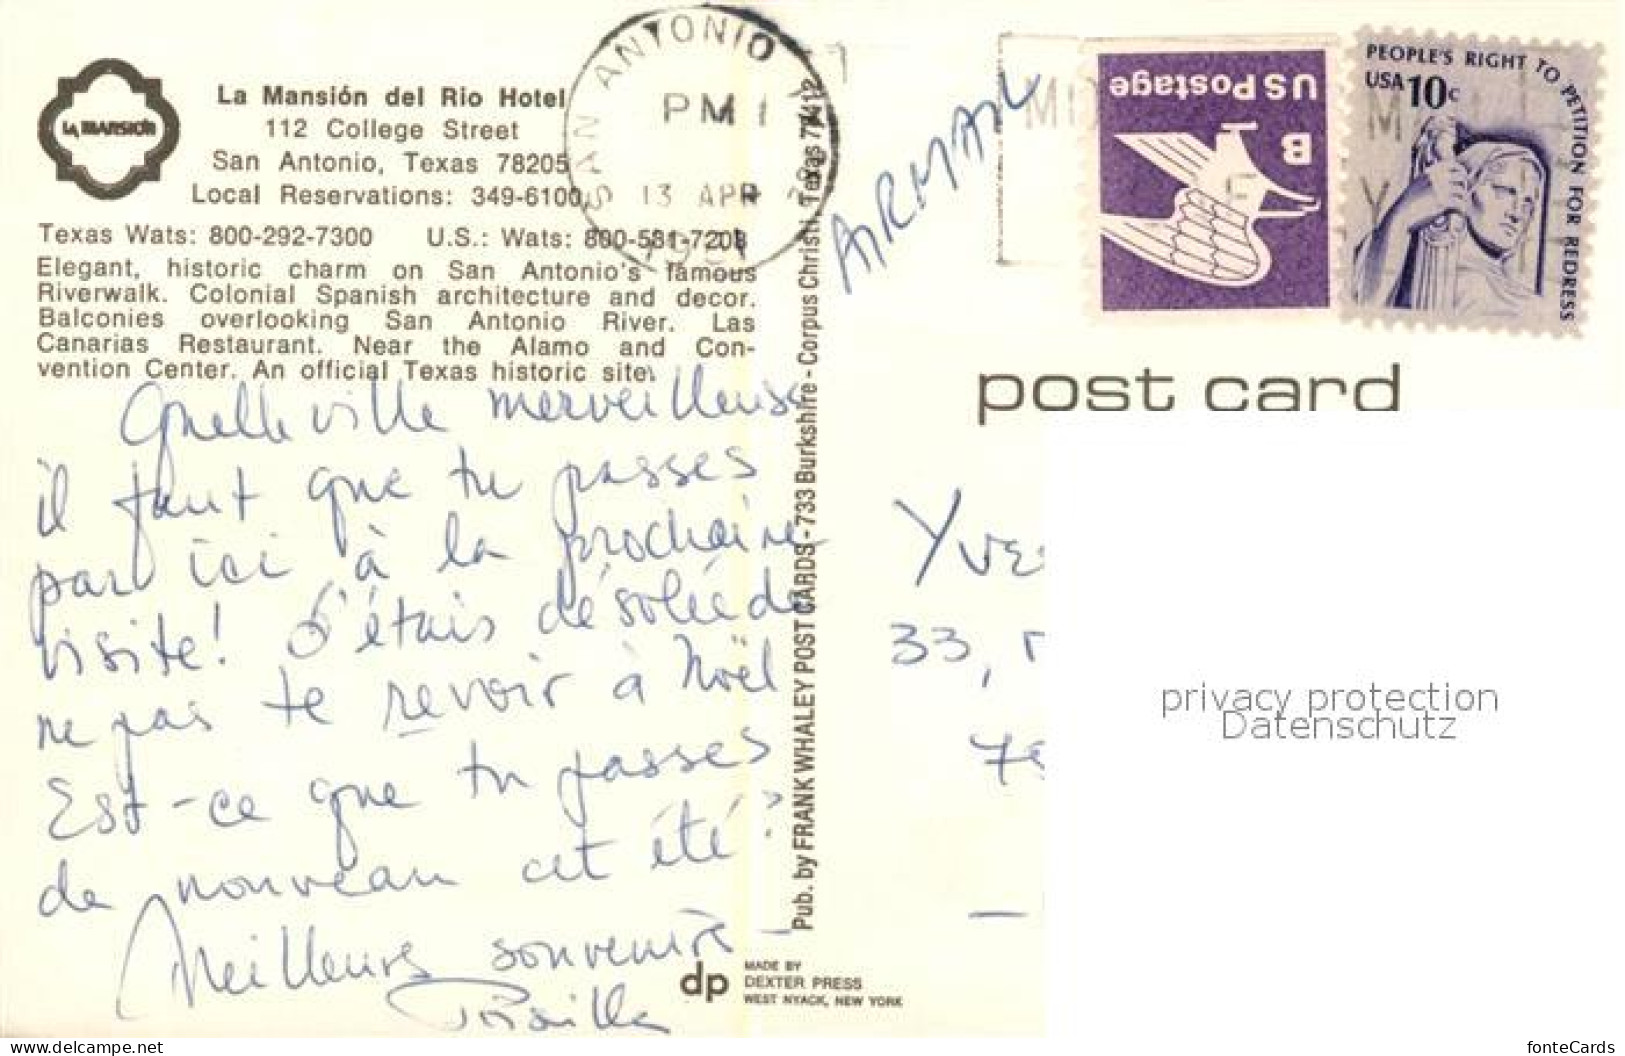 LA MANSIÓN
La Mansión del Rio Hotel
112 College Street
San Antonio, Texas 78205
Local Reservations: 349-6100
Texas Wats: 800-292-7300 U.S.: Wats: 800-531-7208
Elegant, historic charm on San Antonio's famous
Riverwalk. Colonial Spanish architecture and decor.
Balconies overlooking San Antonio River. Las
Canarias Restaurant. Near the Alamo and Con-
vention Center. An official Texas historic site.
Quelle ville merveilleuse
il faut que tu passes
par ici à la prochaine
visite! J'étais désolée de
ne pas te revoir à Noël
Est-ce que tu passes
de nouveau cet été?
Meilleurs souvenirs
SAN ANTONIO
PM
13 APR
1981
AIRMAIL
US Postage
B
PEOPLE'S RIGHT TO PETITION FOR REDRESS
USA 10c
post card
Pub. by FRANK WHALEY POST CARDS - 733 Burkshire - Corpus Christi, Texas 78412
Yves
33, r
privacy protection
Datenschutz
dp
MADE BY
DEXTER PRESS
WEST NYACK, NEW YORK
https://www.delcampe.net
fonteCards